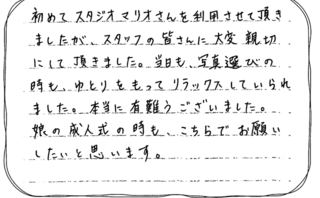 初めてスタジオマリオさんを利用させて頂き
ましたが、スタッフの皆さんに大変親切
にして頂きました。当日も、写真選びの
時も、ゆとりをもってリラックスしていられ
ました。本当に有難うございました。
娘の成人式の時も、こちらでお願い
したいと思います。